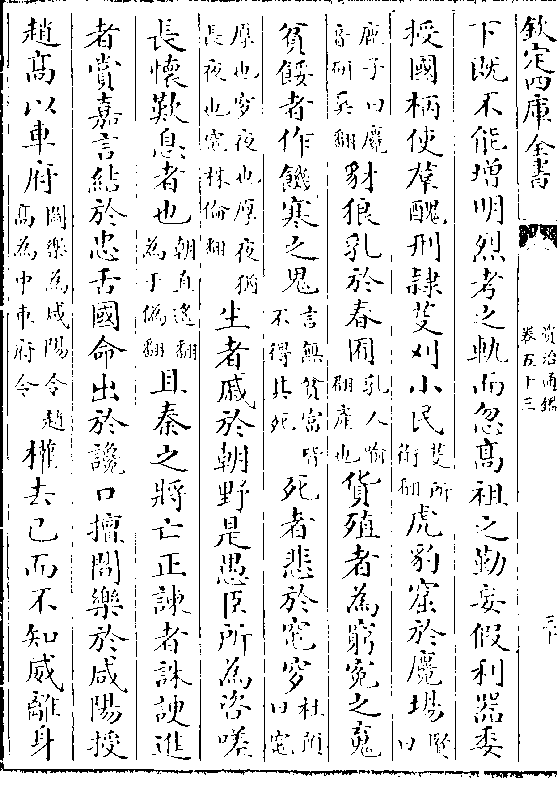 欽定四庫全書
資治通鑑
卷五十三
下既不能增明烈考之軌而忽髙祖之勤妄假利器委
授國柄使羣醜刑隸芟刈小民芟所銜翻虎豹窟於麑場賢曰
鹿子曰麑音研奚翻豺狼乳於春囿乳人喻翻産也貨殖者為窮寃之䰟
貧餒者作饑寒之鬼言無貧富皆不得其死死者悲於窀穸杜預曰窀
厚也穸夜也厚夜猶長夜也窀株倫翻生者戚於朝野是愚臣所為咨嗟
長懐歎息者也朝直遥翻為于偽翻且秦之將亡正諫者誅諛進
者賞嘉言結於忠舌國命出於讒口擅閻樂於咸陽授
趙髙以車府閻樂為咸陽令趙髙為中車府令權去已而不知威離身